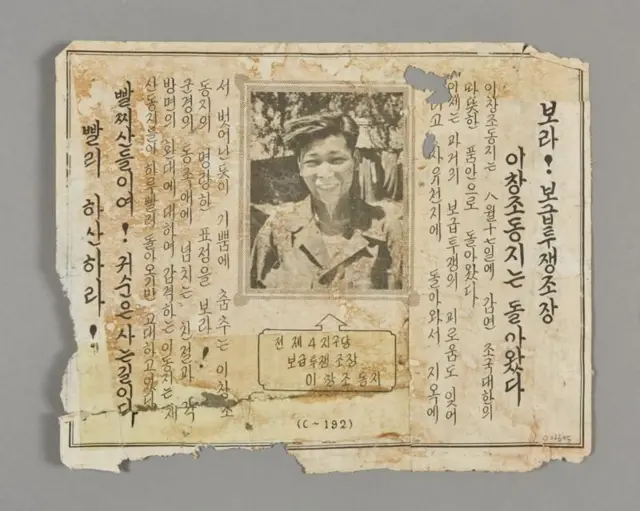 보라! 보급투쟁조장
이창조동지는 돌아왔다
이창조동지는 八월十七일에 감연 조국대한의
따뜻한 품안으로 돌아왔다
이제는 과거의 보급투쟁의 괴로움도 잊어
리고 자유천지에 돌아와서 지옥에
전 제4지구당
보급투쟁조장
이창조동지
(C~192)
서 벗어난듯이 기쁨에 춤추는 이창조
동지의 명랑한 표정을 보라!
군경의 동족애에 넘치는 친절과 각
방면의 환대에 대하여 감격하는 이동지는 재
산동지들이 하루빨리 돌아오기만 고대하고있다
빨찌산들이여! 귀순은 사는길이다
빨리 하산하라!